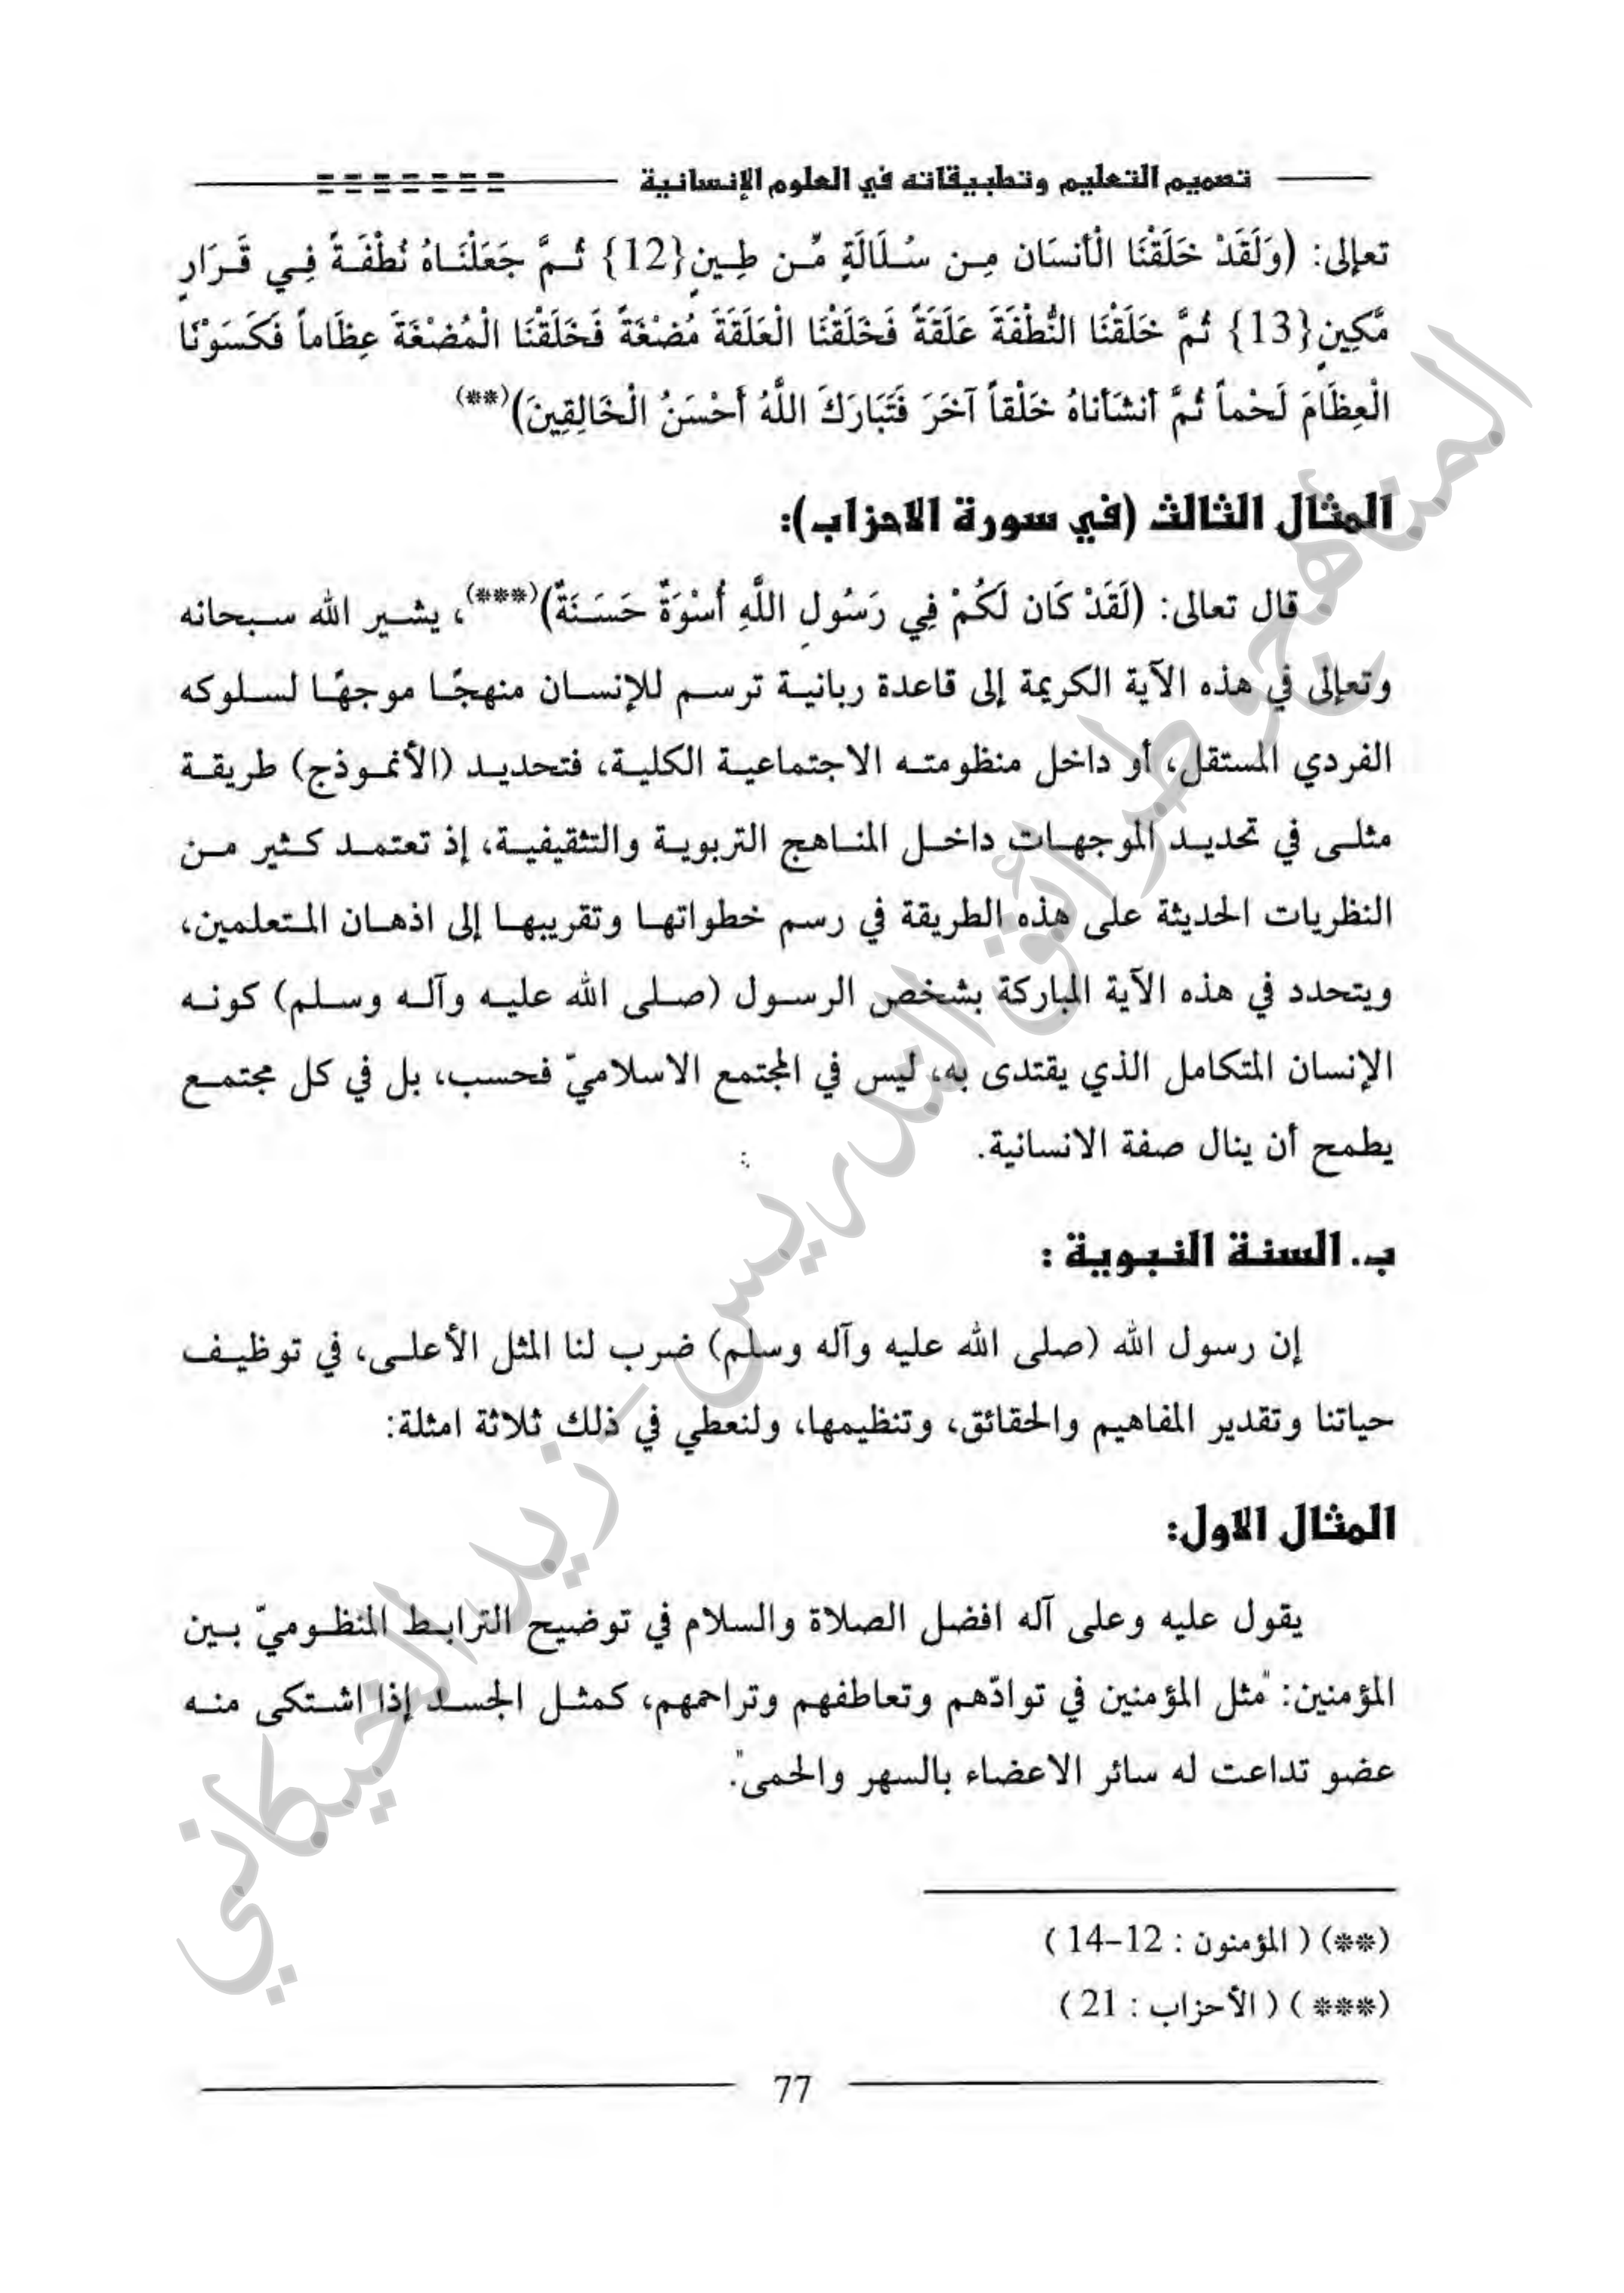 تصميم التعليم وتطبيقاته في العلوم الإنسانية
تعالى: (وَلَقَدْ خَلَقْنَا الْأنسَان مِـن سُـلَالَةٍ مِّـن طِـينٍ{12} ثُـمَّ جَعَلْنَـاهُ نُطْفَـةً فِـي قَـرَارٍ
مَّكِينٍ{13} ثُمَّ خَلَقْنَا النُّطْفَةَ عَلَقَةً فَخَلَقْنَا الْعَلَقَةَ مُضْغَةً فَخَلَقْنَا الْمُضْغَةَ عِظَاماً فَكَسَوْنَا
الْعِظَامَ لَحْماً ثُمَّ أنشَأناهُ خَلْقاً آخَرَ فَتَبَارَكَ اللَّهُ أَحْسَنُ الْخَالِقِينَ)(**)
المثال الثالث (في سورة الاحزاب):
قال تعالى: (لَقَدْ كَان لَكُمْ فِي رَسُولِ اللَّهِ أُسْوَةٌ حَسَـنَةٌ)(***)، يشـير الله سـبحانه
وتعالى في هذه الآية الكريمة إلى قاعدة ربانيـة ترسـم للإنسـان منهجًـا موجهًـا لسـلوكه
الفردي المستقل، أو داخل منظومتـه الاجتماعيـة الكليـة، فتحديـد (الأنمـوذج) طريقـة
مثلـى في تحديـد الموجهـات داخـل المنـاهج التربويـة والتثقيفيـة، إذ تعتمـد كـثير مـن
النظريات الحديثة على هذه الطريقة في رسم خطواتهـا وتقريبهـا إلى اذهـان المـتعلمين،
ويتحدد في هذه الآية المباركة بشخص الرسـول (صـلى الله عليـه وآلـه وسـلم) كونـه
الإنسان المتكامل الذي يقتدى به، ليس في المجتمع الاسلاميّ فحسب، بل في كل مجتمـع
يطمح أن ينال صفة الانسانية.
ب. السنة النبوية :
إن رسول الله (صلى الله عليه وآله وسلم) ضرب لنا المثل الأعلـى، في توظيـف
حياتنا وتقدير المفاهيم والحقائق، وتنظيمها، ولنعطي في ذلك ثلاثة امثلة:
المثال الاول:
يقول عليه وعلى آله افضل الصلاة والسلام في توضيح الترابـط المنظـوميّ بـين
المؤمنين: "مثل المؤمنين في توادّهم وتعاطفهم وتراحمهم، كمثـل الجسـد إذا اشـتكى منـه
عضو تداعت له سائر الاعضاء بالسهر والحمى".
(**) ( المؤمنون : 12-14 )
(*** ) ( الأحزاب : 21 )
77
المناهج وطرائق التدريس - زيد الخيكاني